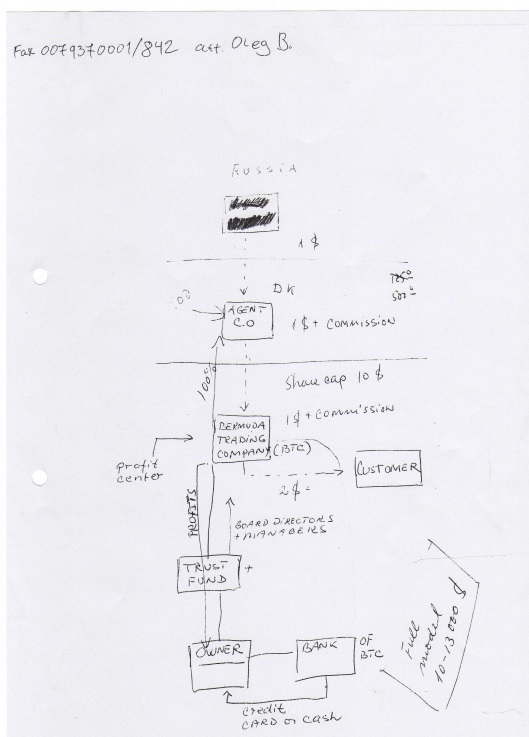 Fax 0079370001/842 att. Oleg B.
RUSSIA
1 $
DK
500
AGENT
C.O
1 $ + COMMISSION
100%
Share cap 10 $
BERMUDA
TRADING
COMPANY (BTC)
1 $ + COMMISSION
profit
center
CUSTOMER
2 $
PROFITS
BOARD DIRECTORS
+ MANAGERS
TRUST
FUND
+
OWNER
BANK
OF
BTC
credit
CARD or cash
Full
model
10-13000 $